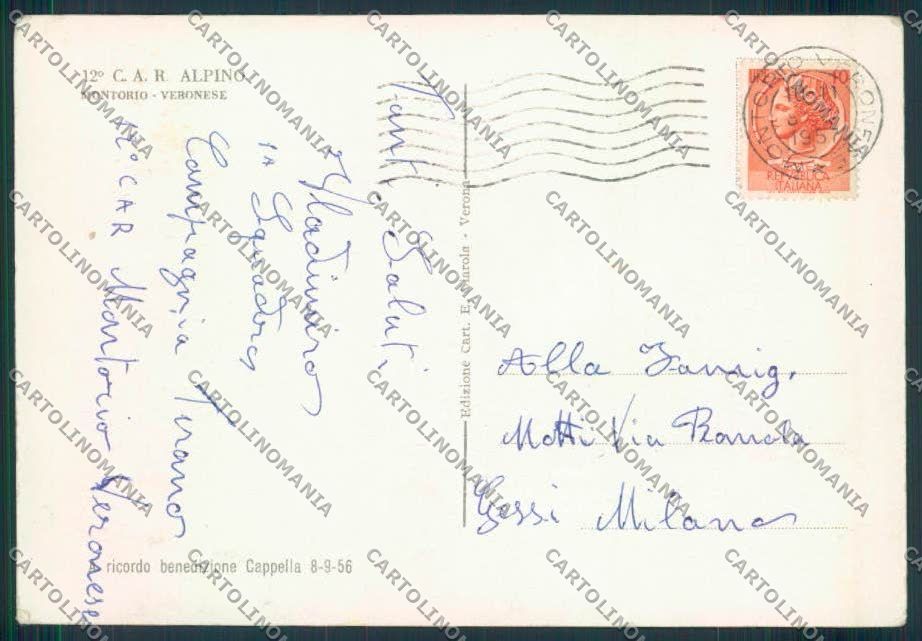 12º C. A. R. ALPINO
MONTORIO - VERONESE
Tanti Saluti
Vladimiro
1ª Squadra
Compagnia Tirano
12º CAR Montorio Veronese
ricordo benedizione Cappella 8-9-56
Edizione Cart. E. - Verona
LIRE 10
REPUBBLICA
ITALIANA
MONTORIO VERONESE
Alla Famig.
Motti Via
Gessi Milano
CARTOLINOMANIA